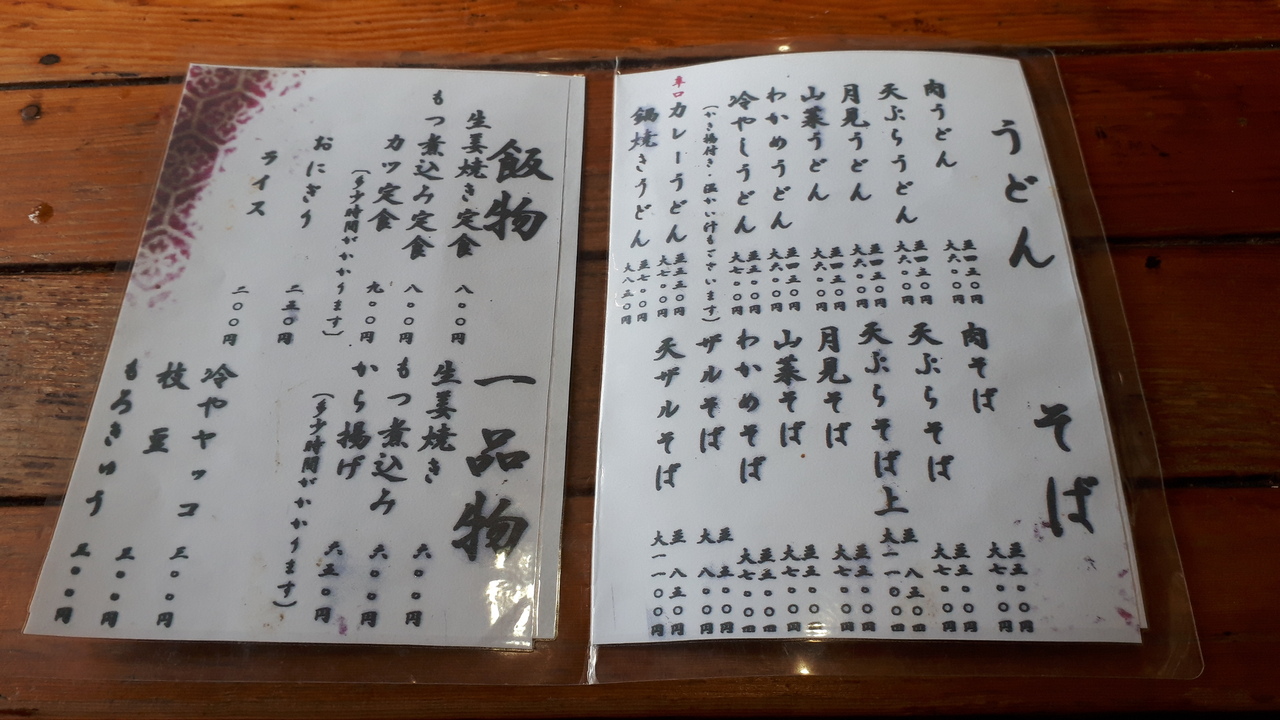 うどん
肉うどん
並四五〇円
大六〇〇円
天ぷらうどん
並四五〇円
大六〇〇円
月見うどん
並四五〇円
大六〇〇円
山菜うどん
並四五〇円
大六〇〇円
わかめうどん
並四五〇円
大六〇〇円
冷やしうどん
並五五〇円
大七〇〇円
(かき揚付き・温かい汁もございます)
辛口
カレーうどん
並五五〇円
大七〇〇円
鍋焼きうどん
並七〇〇円
大八五〇円
そば
肉そば
並五五〇円
大七〇〇円
天ぷらそば
並五五〇円
大七〇〇円
天ぷらそば上
並八五〇円
大一一〇〇円
月見そば
大七〇〇円
山菜そば
並五五〇円
大七〇〇円
わかめそば
並五五〇円
大七〇〇円
ザルそば
並五〇〇円
大八〇〇円
天ザルそば
並八五〇円
大一一〇〇円
飯物
生姜焼き定食
八〇〇円
もつ煮込み定食
八〇〇円
カツ定食
九〇〇円
(多少時間がかかります)
おにぎり
二五〇円
ライス
二〇〇円
一品物
生姜焼き
六〇〇円
もつ煮込み
六〇〇円
から揚げ
六五〇円
(多少時間がかかります)
冷ヤヤッコ
三〇〇円
枝豆
三〇〇円
もろきゅう
三〇〇円